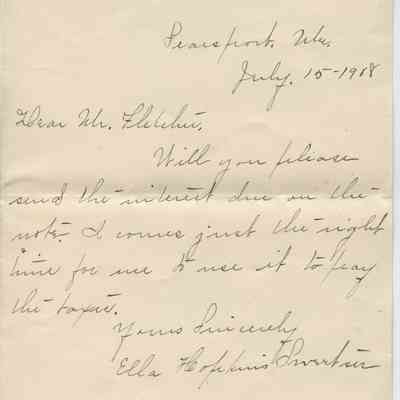 Searsport. Me.
July. 15-1918
Dear Mr. Fletcher,
Will you please
send the interest due on the
note. I comes just the right
time for me to use it to pay
the taxes.
Yours Sincerely
Ella Hopkins Sweetser